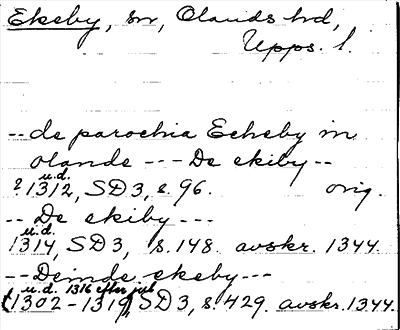 Ekeby, sn, Olands hd,
Upps. l.
-- de parochia Echeby in
olande --- De ekiby --
u.d.
? 1312, SD 3, s. 96. orig.
-- De ekiby ---
u.d.
1314, SD 3, s. 148. avskr. 1344.
-- Deinde ekeby ---
u.d. 1316 efter juli
(1302-1319), SD 3, s. 429. avskr. 1344.